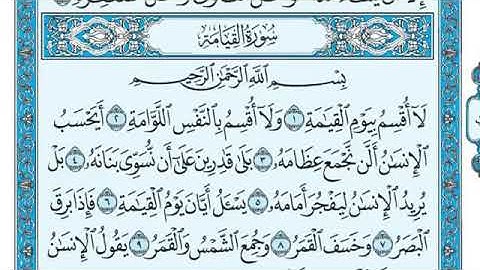 سُورَةُ القِيَامَة
بِسْمِ ٱللَّهِ ٱلرَّحْمَٰنِ ٱلرَّحِيمِ
لَآ أُقْسِمُ بِيَوْمِ ٱلْقِيَٰمَةِ ١ وَلَآ أُقْسِمُ بِٱلنَّفْسِ ٱللَّوَّامَةِ ٢ أَيَحْسَبُ
ٱلْإِنسَٰنُ أَلَّن نَّجْمَعَ عِظَامَهُۥ ٣ بَلَىٰ قَٰدِرِينَ عَلَىٰٓ أَن نُّسَوِّىَ بَنَانَهُۥ ٤ بَلْ
يُرِيدُ ٱلْإِنسَٰنُ لِيَفْجُرَ أَمَامَهُۥ ٥ يَسْـَٔلُ أَيَّانَ يَوْمُ ٱلْقِيَٰمَةِ ٦ فَإِذَا بَرِقَ
ٱلْبَصَرُ ٧ وَخَسَفَ ٱلْقَمَرُ ٨ وَجُمِعَ ٱلشَّمْسُ وَٱلْقَمَرُ ٩ يَقُولُ ٱلْإِنسَٰنُ